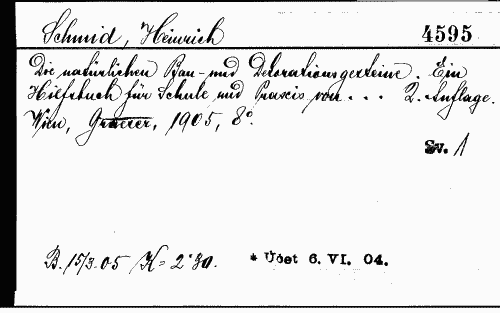 Schmid, Heinrich 4595
Die natürlichen Bau- und Dekorationsgesteine. Ein
Hilfsbuch für Schule und Praxis von ... 2. Auflage.
Wien, Graeser, 1905, 8°.
Sv. 1
B. 15/3 05 K = 2·80. * Účet 6. VI. 04.